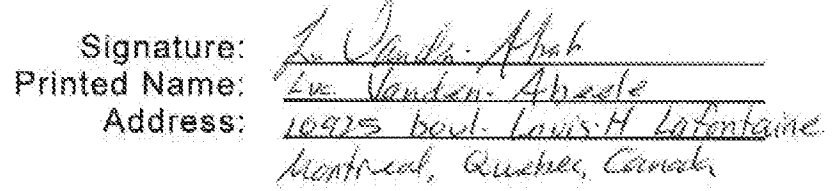 Signature: L. Vanden-Abeele
Printed Name: Luc Vanden-Abeele
Address: 10925 boul. Louis-H Lafontaine
Montreal, Quebec, Canada